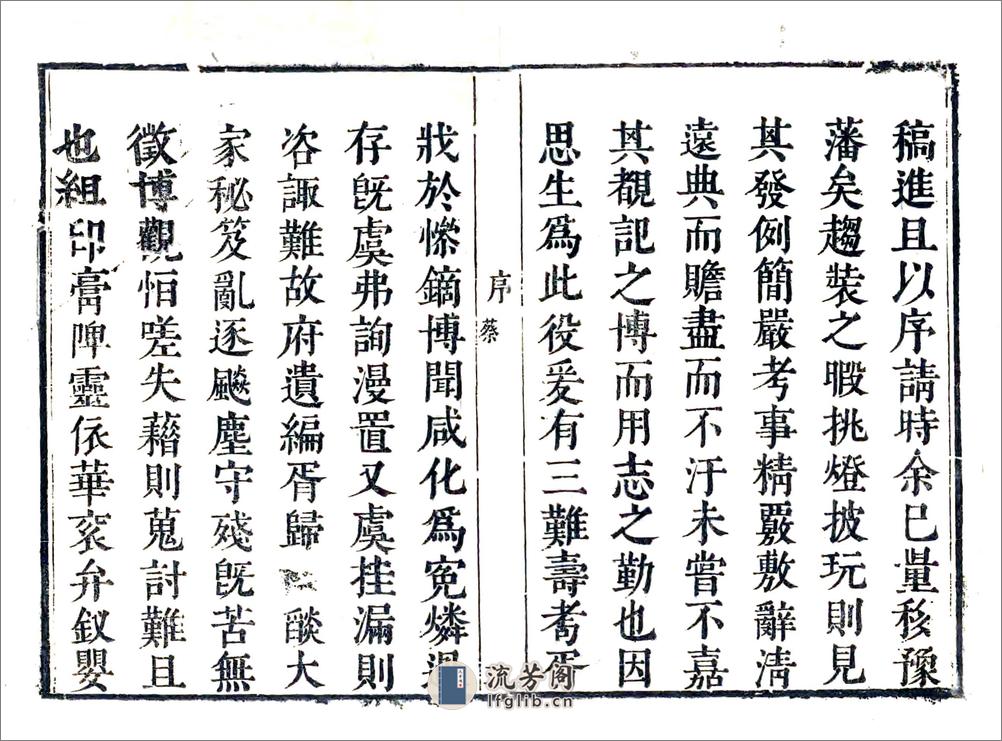 稿進且以序請時余已量移豫
藩矣趨裝之暇挑燈披玩則見
其發例簡嚴考事精覈敷辭清
遠典而贍盡而不汙未嘗不嘉
其覩記之博而用志之勤也因
思生爲此役爰有三難壽耇胥
序
蔡
戕於慘鏑博聞咸化爲寃燐
存旣虞弗詢漫置又虞挂漏則
咨諏難故府遺編胥歸燄大
家秘笈亂逐飇塵守殘旣苦無
徵博觀恒嗟失藉則蒐討難且
也組印膏啤靈依華袞弁釵嬰
流芳阁
lfglib.cn